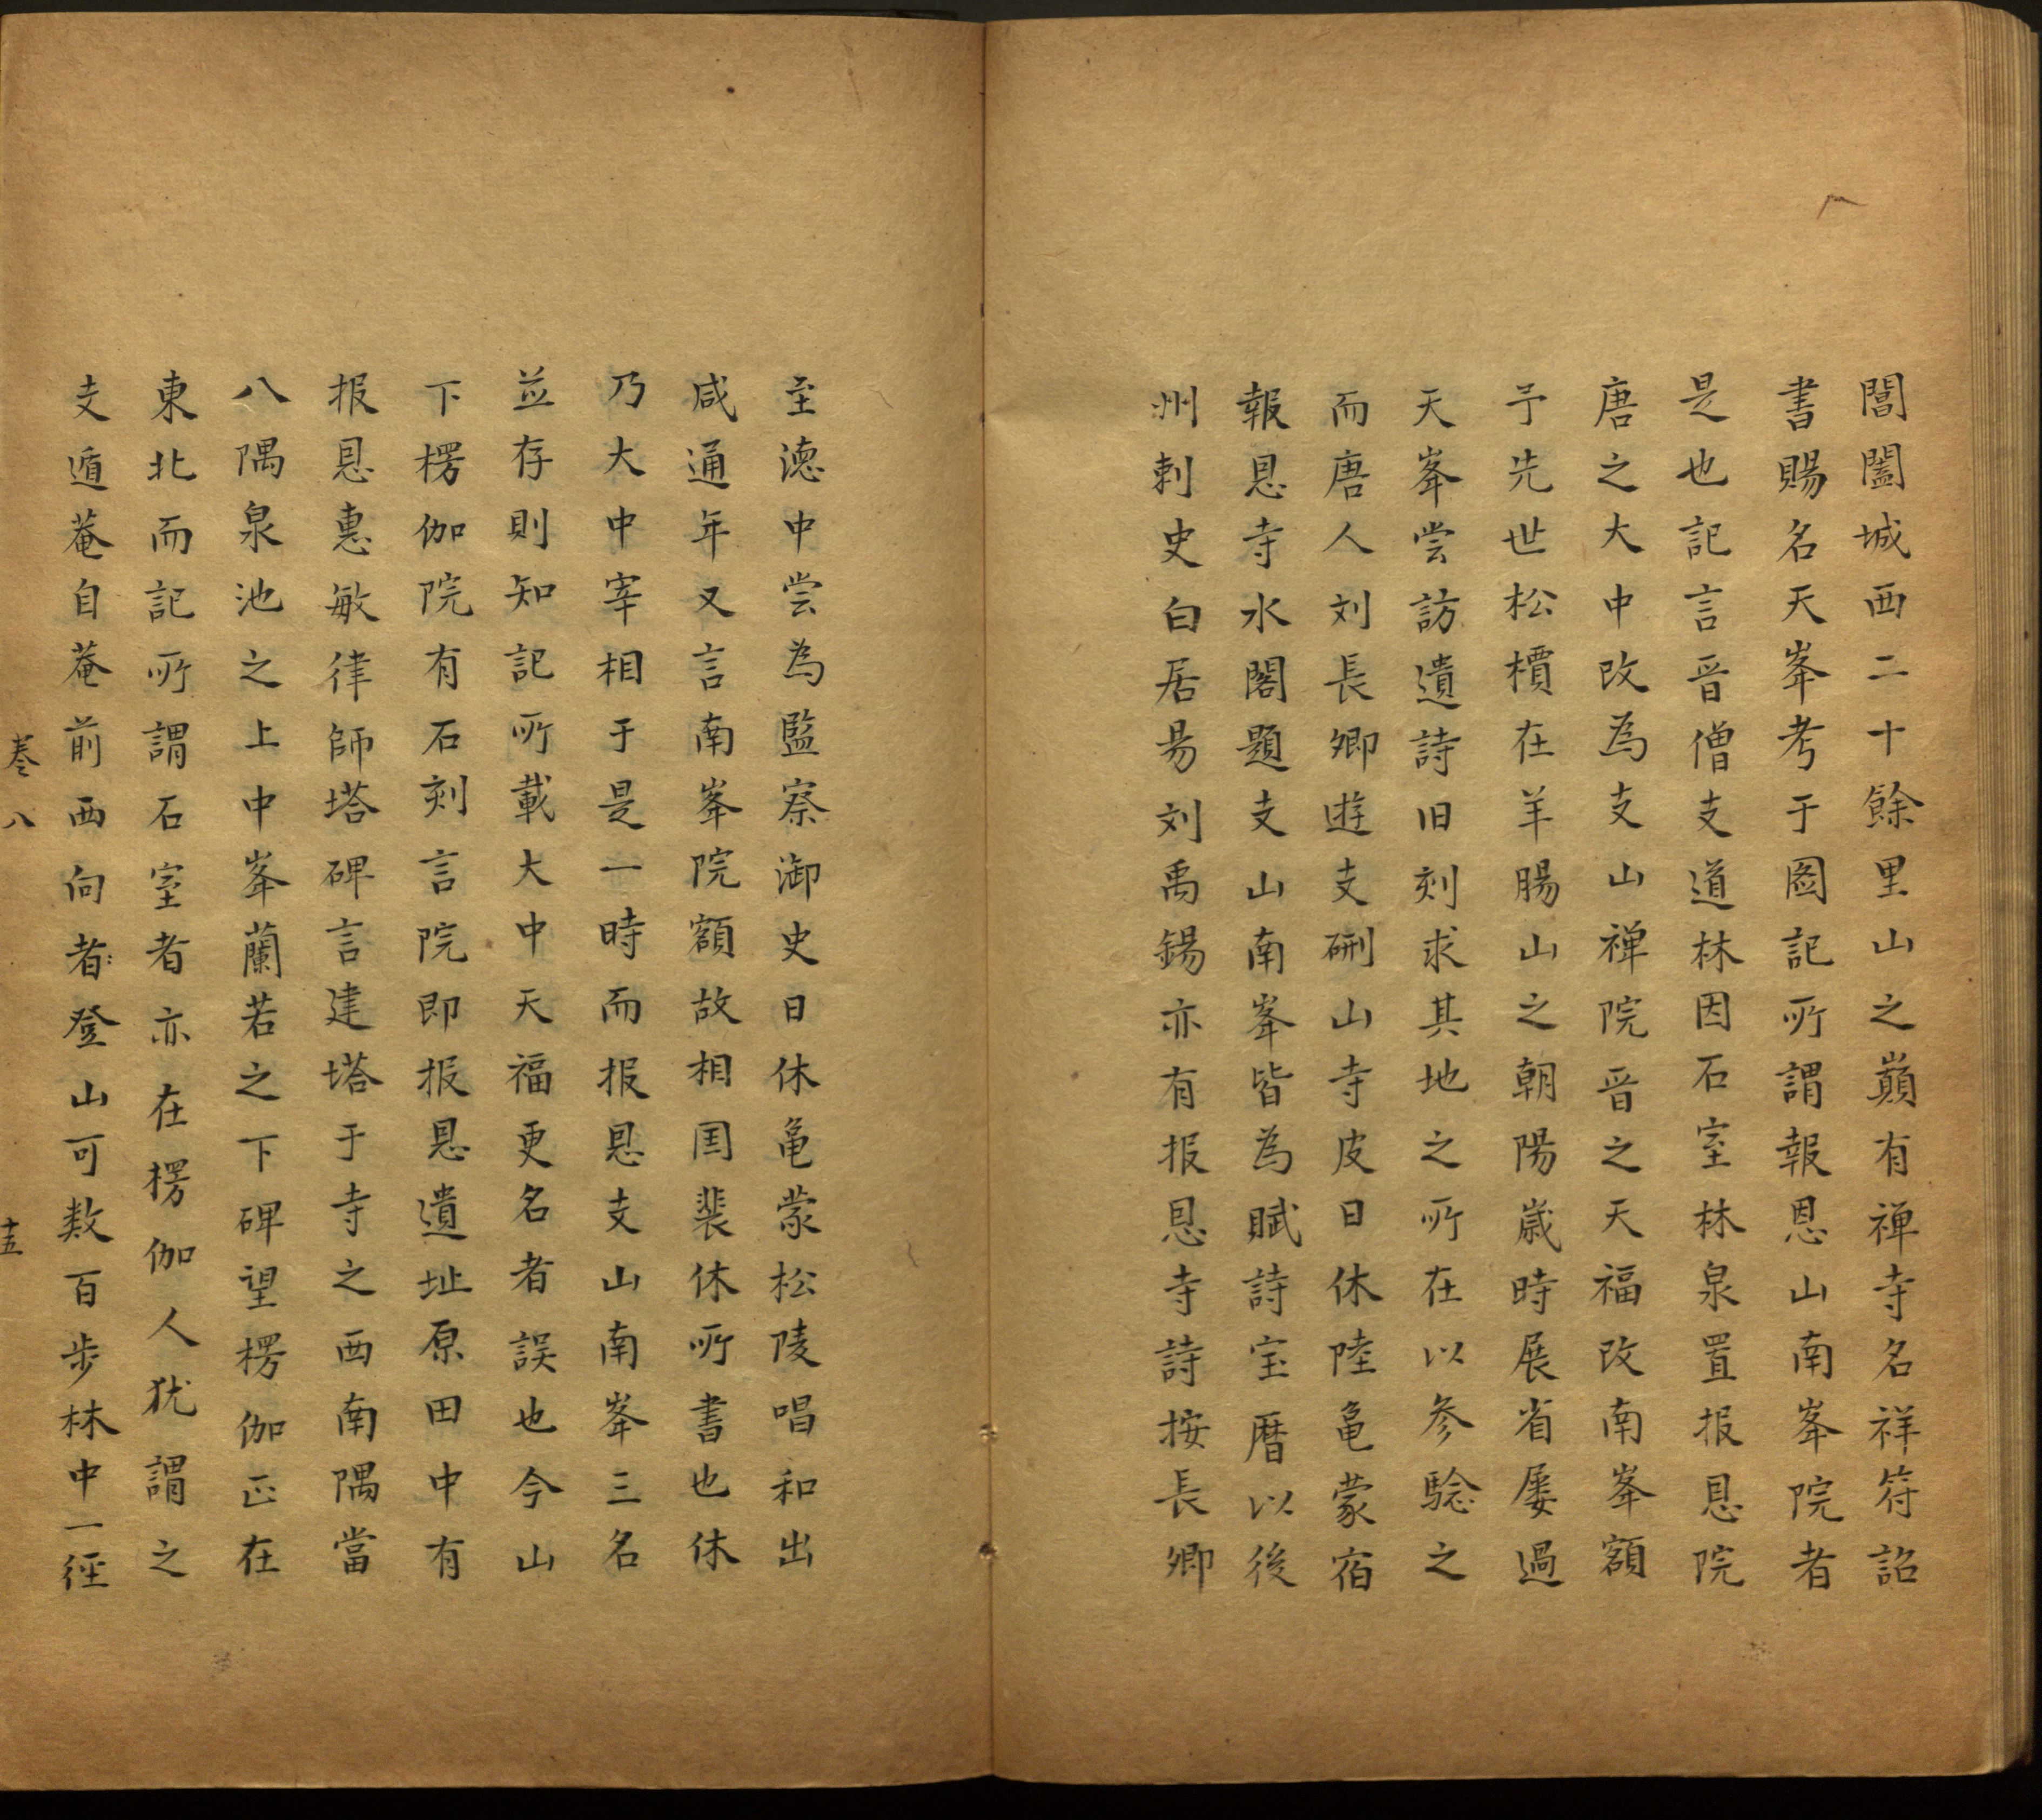 閶闔城西二十餘里山之巔有禅寺名祥符詔
書賜名天峯考于圖記所謂報恩山南峯院者
是也記言晋僧支道林因石室林泉置报恩院
唐之大中改為支山禅院晋之天福改南峯額
予先世松檟在羊腸山之朝陽歲時展省屡過
天峯嘗訪遺詩旧刻求其地之所在以参驗之
而唐人刘長卿遊支硎山寺皮日休陸亀蒙宿
報恩寺水閣題支山南峯皆為賦詩宝暦以後
州刺史白居易刘禹錫亦有报恩寺詩按長卿
至德中尝為監察御史日休亀蒙松陵唱和出
咸通年又言南峯院額故相国裴休所書也休
乃大中宰相于是一時而报恩支山南峯三名
並存則知記所載大中天福更名者誤也今山
下楞伽院有石刻言院即报恩遺址原田中有
报恩惠敏律師塔碑言建塔于寺之西南隅當
八隅泉池之上中峯蘭若之下碑望楞伽正在
東北而記所謂石室者亦在楞伽人犹謂之
支遁菴自菴前西向者登山可数百步林中一徑
卷八
十五